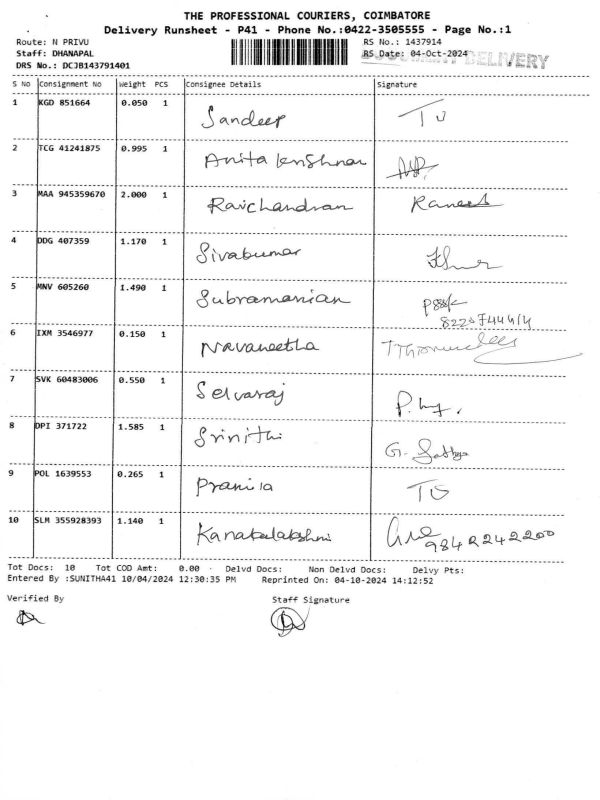 THE PROFESSIONAL COURIERS, COIMBATORE
Delivery Runsheet - P41 - Phone No.:0422-3505555 - Page No.:1
Route: N PRIVU RS No.: 1437914
Staff: DHANAPAL RS Date: 04-Oct-2024 DOCUMENT DELIVERY
DRS No.: DCJB143791401
S No Consignment No Weight PCS Consignee Details Signature
1 KGD 851664 0.050 1 Sandeep
2 TCG 41241875 0.995 1 Anita krishnan
3 MAA 945359670 2.000 1 Ravichandran Ramesh
4 DDG 407359 1.170 1 Sivakumar
5 MNV 605260 1.490 1 Subramanian
6 IXM 3546977 0.150 1 Navaneetha
7 SVK 60483006 0.550 1 Selvaraj
8 DPI 371722 1.585 1 Srinithi G. Sathya
9 POL 1639553 0.265 1 Pramila
10 SLM 355928393 1.140 1 Kanakalakshmi 9842242200
Tot Docs: 10 Tot COD Amt: 0.00 Delvd Docs: Non Delvd Docs: Delvy Pts:
Entered By :SUNITHA41 10/04/2024 12:30:35 PM Reprinted On: 04-10-2024 14:12:52
Verified By Staff Signature